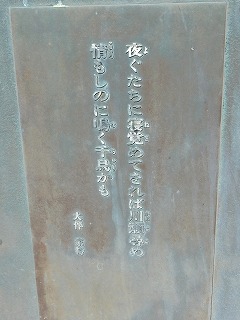 夜ぐたちに寝覚めてをれば川瀬尋め
情もしのに鳴く千鳥かも
大伴 家持